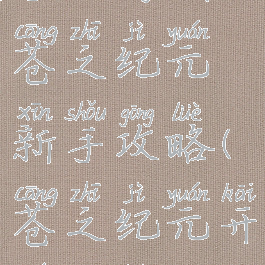 cāng zhī jì yuán
苍之纪元
xīn shǒu gōng lüè
新手攻略(
cāng zhī jì yuán kāi
苍之纪元开